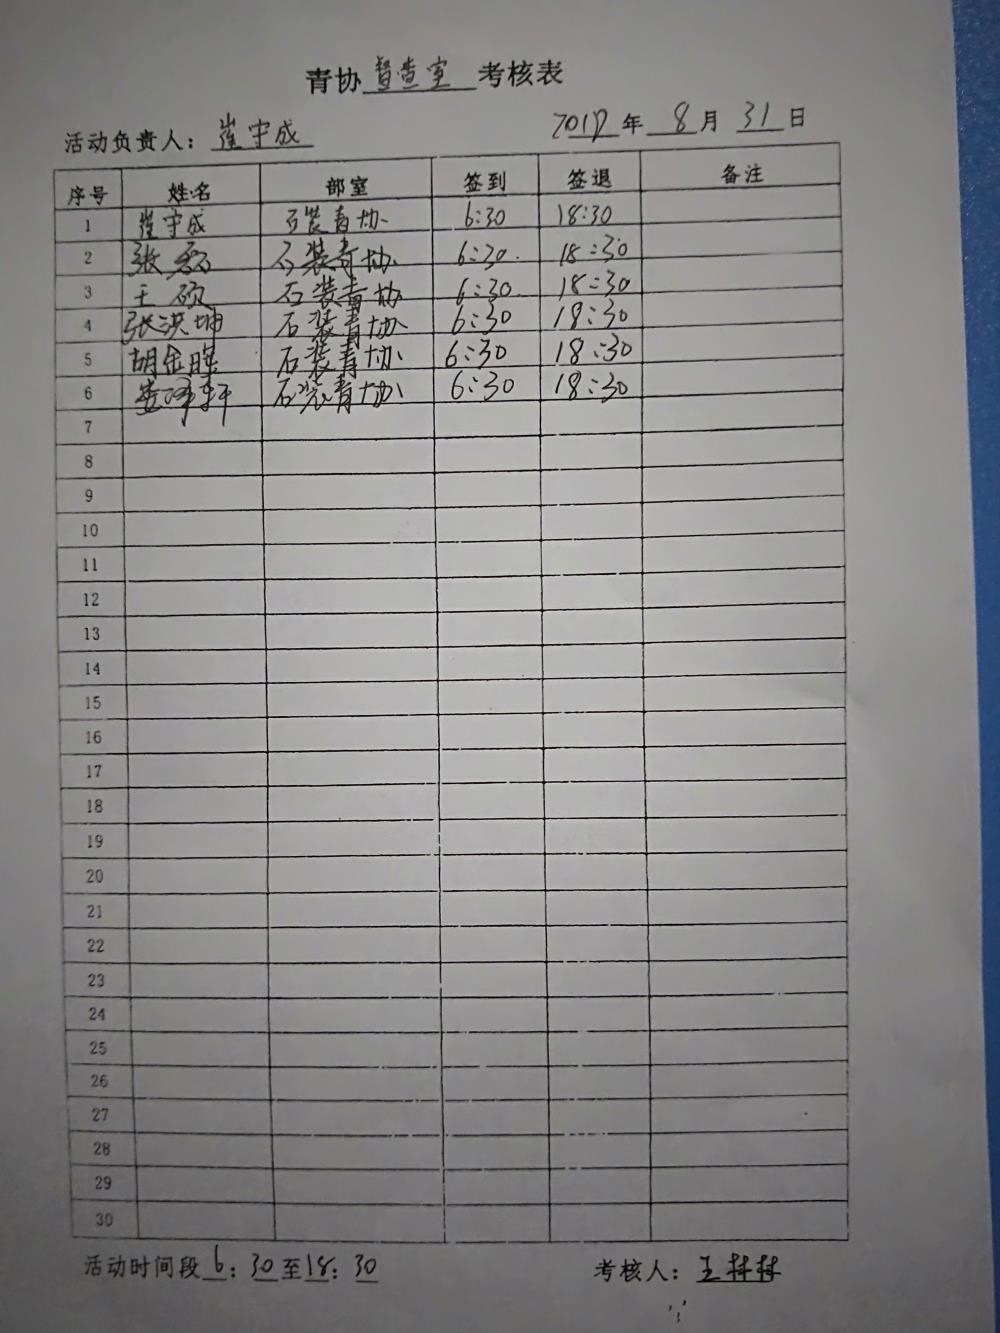 青协督查室考核表
活动负责人：崔守成 2017年8月31日
序号 姓名 部室 签到 签退 备注
1 崔守成 石装青协 6:30 18:30
2 张磊 石装青协 6:30 18:30
3 王硕 石装青协 6:30 18:30
4 张洪坤 石装青协 6:30 18:30
5 胡金 石装青协 6:30 18:30
6 石装青协 6:30 18:30
7
8
9
10
11
12
13
14
15
16
17
18
19
20
21
22
23
24
25
26
27
28
29
30
活动时间段 6：30至18：30 考核人：王林林